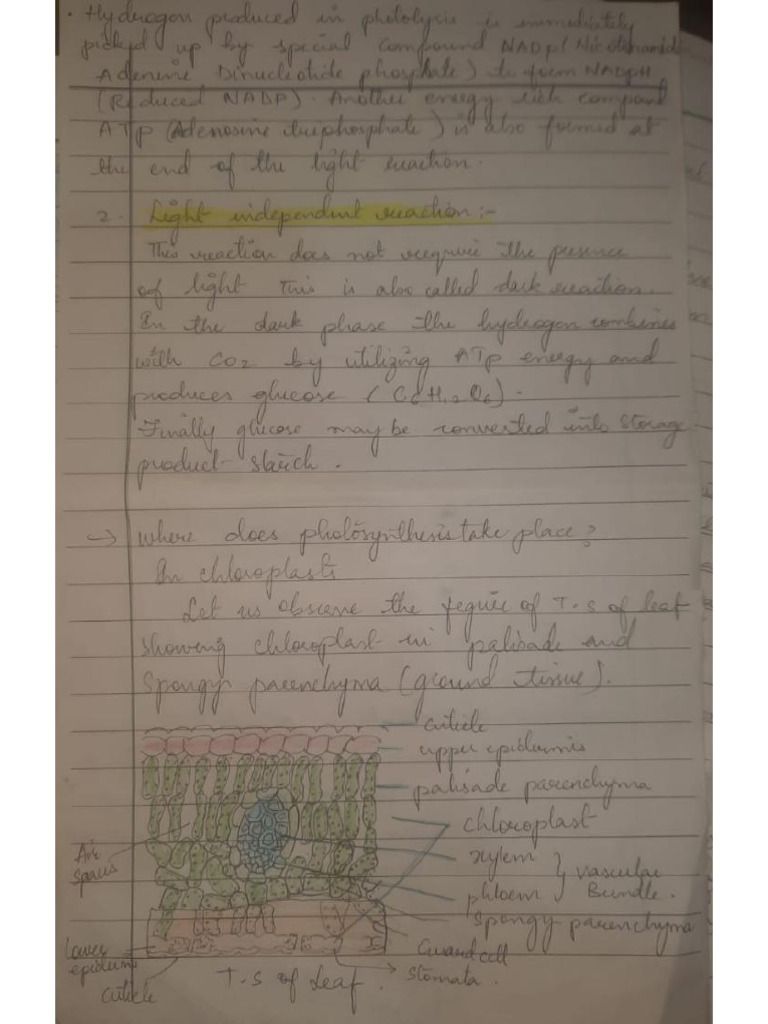 • Hydrogen produced in photolysis is immediately
picked up by special compound NADP (Nicotinamide
Adenine Dinucleotide phosphate) to form NADPH
(Reduced NADP). Another energy rich compound
ATP (Adenosine triphosphate) is also formed at
the end of the light reaction.
2. Light independent reaction:-
This reaction does not require the presence
of light This is also called dark reaction.
In the dark phase the hydrogen combines
with CO2 by utilizing ATP energy and
produces glucose (C6H12O6).
Finally glucose may be converted into storage
product starch.
→ Where does photosynthesis take place?
In chloroplasts
Let us observe the feguie of T.S of leaf
showing chloroplast in palisade and
Spongy parenchyma (ground tissue).
cuticle
upper epidermis
palisade parenchyma
chloroplast
xylem
phloem
} vascular
Bundle.
Air
spaces
Spongy parenchyma
Guard cell
Stomata.
Lower
epidermis
cuticle
T.S of Leaf.